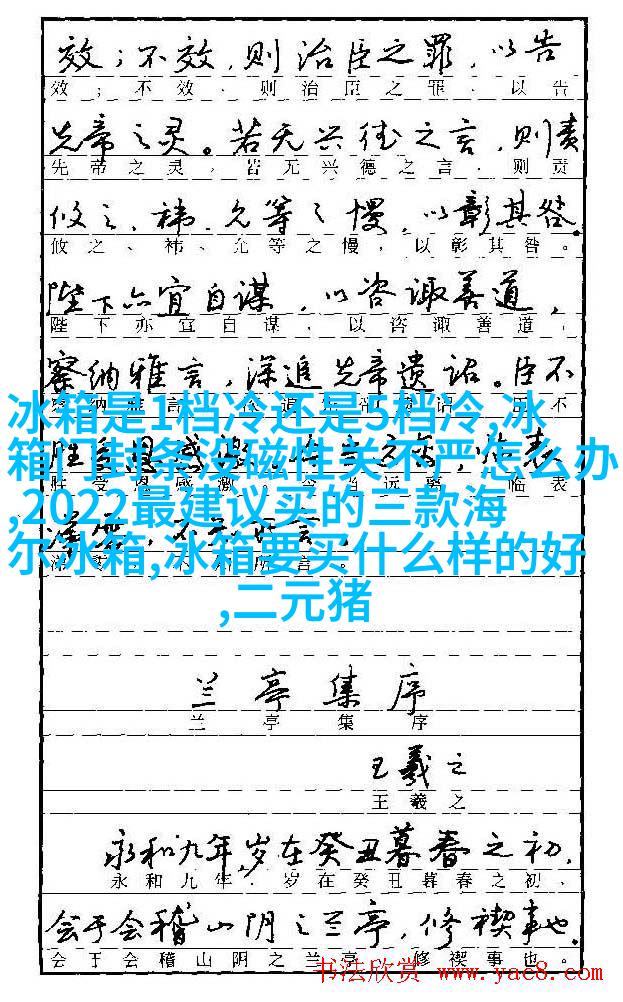 效；不效，则治臣之罪，以告
效；不效、则治臣之罪、以告
先帝之灵。若无兴德之言，则责
先帝之灵，若无兴德之言，则责
攸之、祎、允等之慢，以彰其咎。
攸之、祎、允等之慢，以彰其咎。
陛下亦宜自谋，以咨诹善道，
陛下亦宜自谋，以咨诹善道，
察纳雅言，深追先帝遗诏。臣不
冰箱是1档冷还是5档冷,冰
箱门封条没磁性关不严怎么办
,2022最建议买的三款海
尔冰箱,冰箱要买什么样的好
,二元猪
兰亭集序
兰亭集序
王羲之
王羲之
永和九年,岁在癸丑暮春之初,
永和九年,岁在癸丑暮春之初、
会于会稽山阴之兰亭，修禊事也。
会于会稽山阴之兰亭 修禊事也。
书法欣赏 www.yac8.com